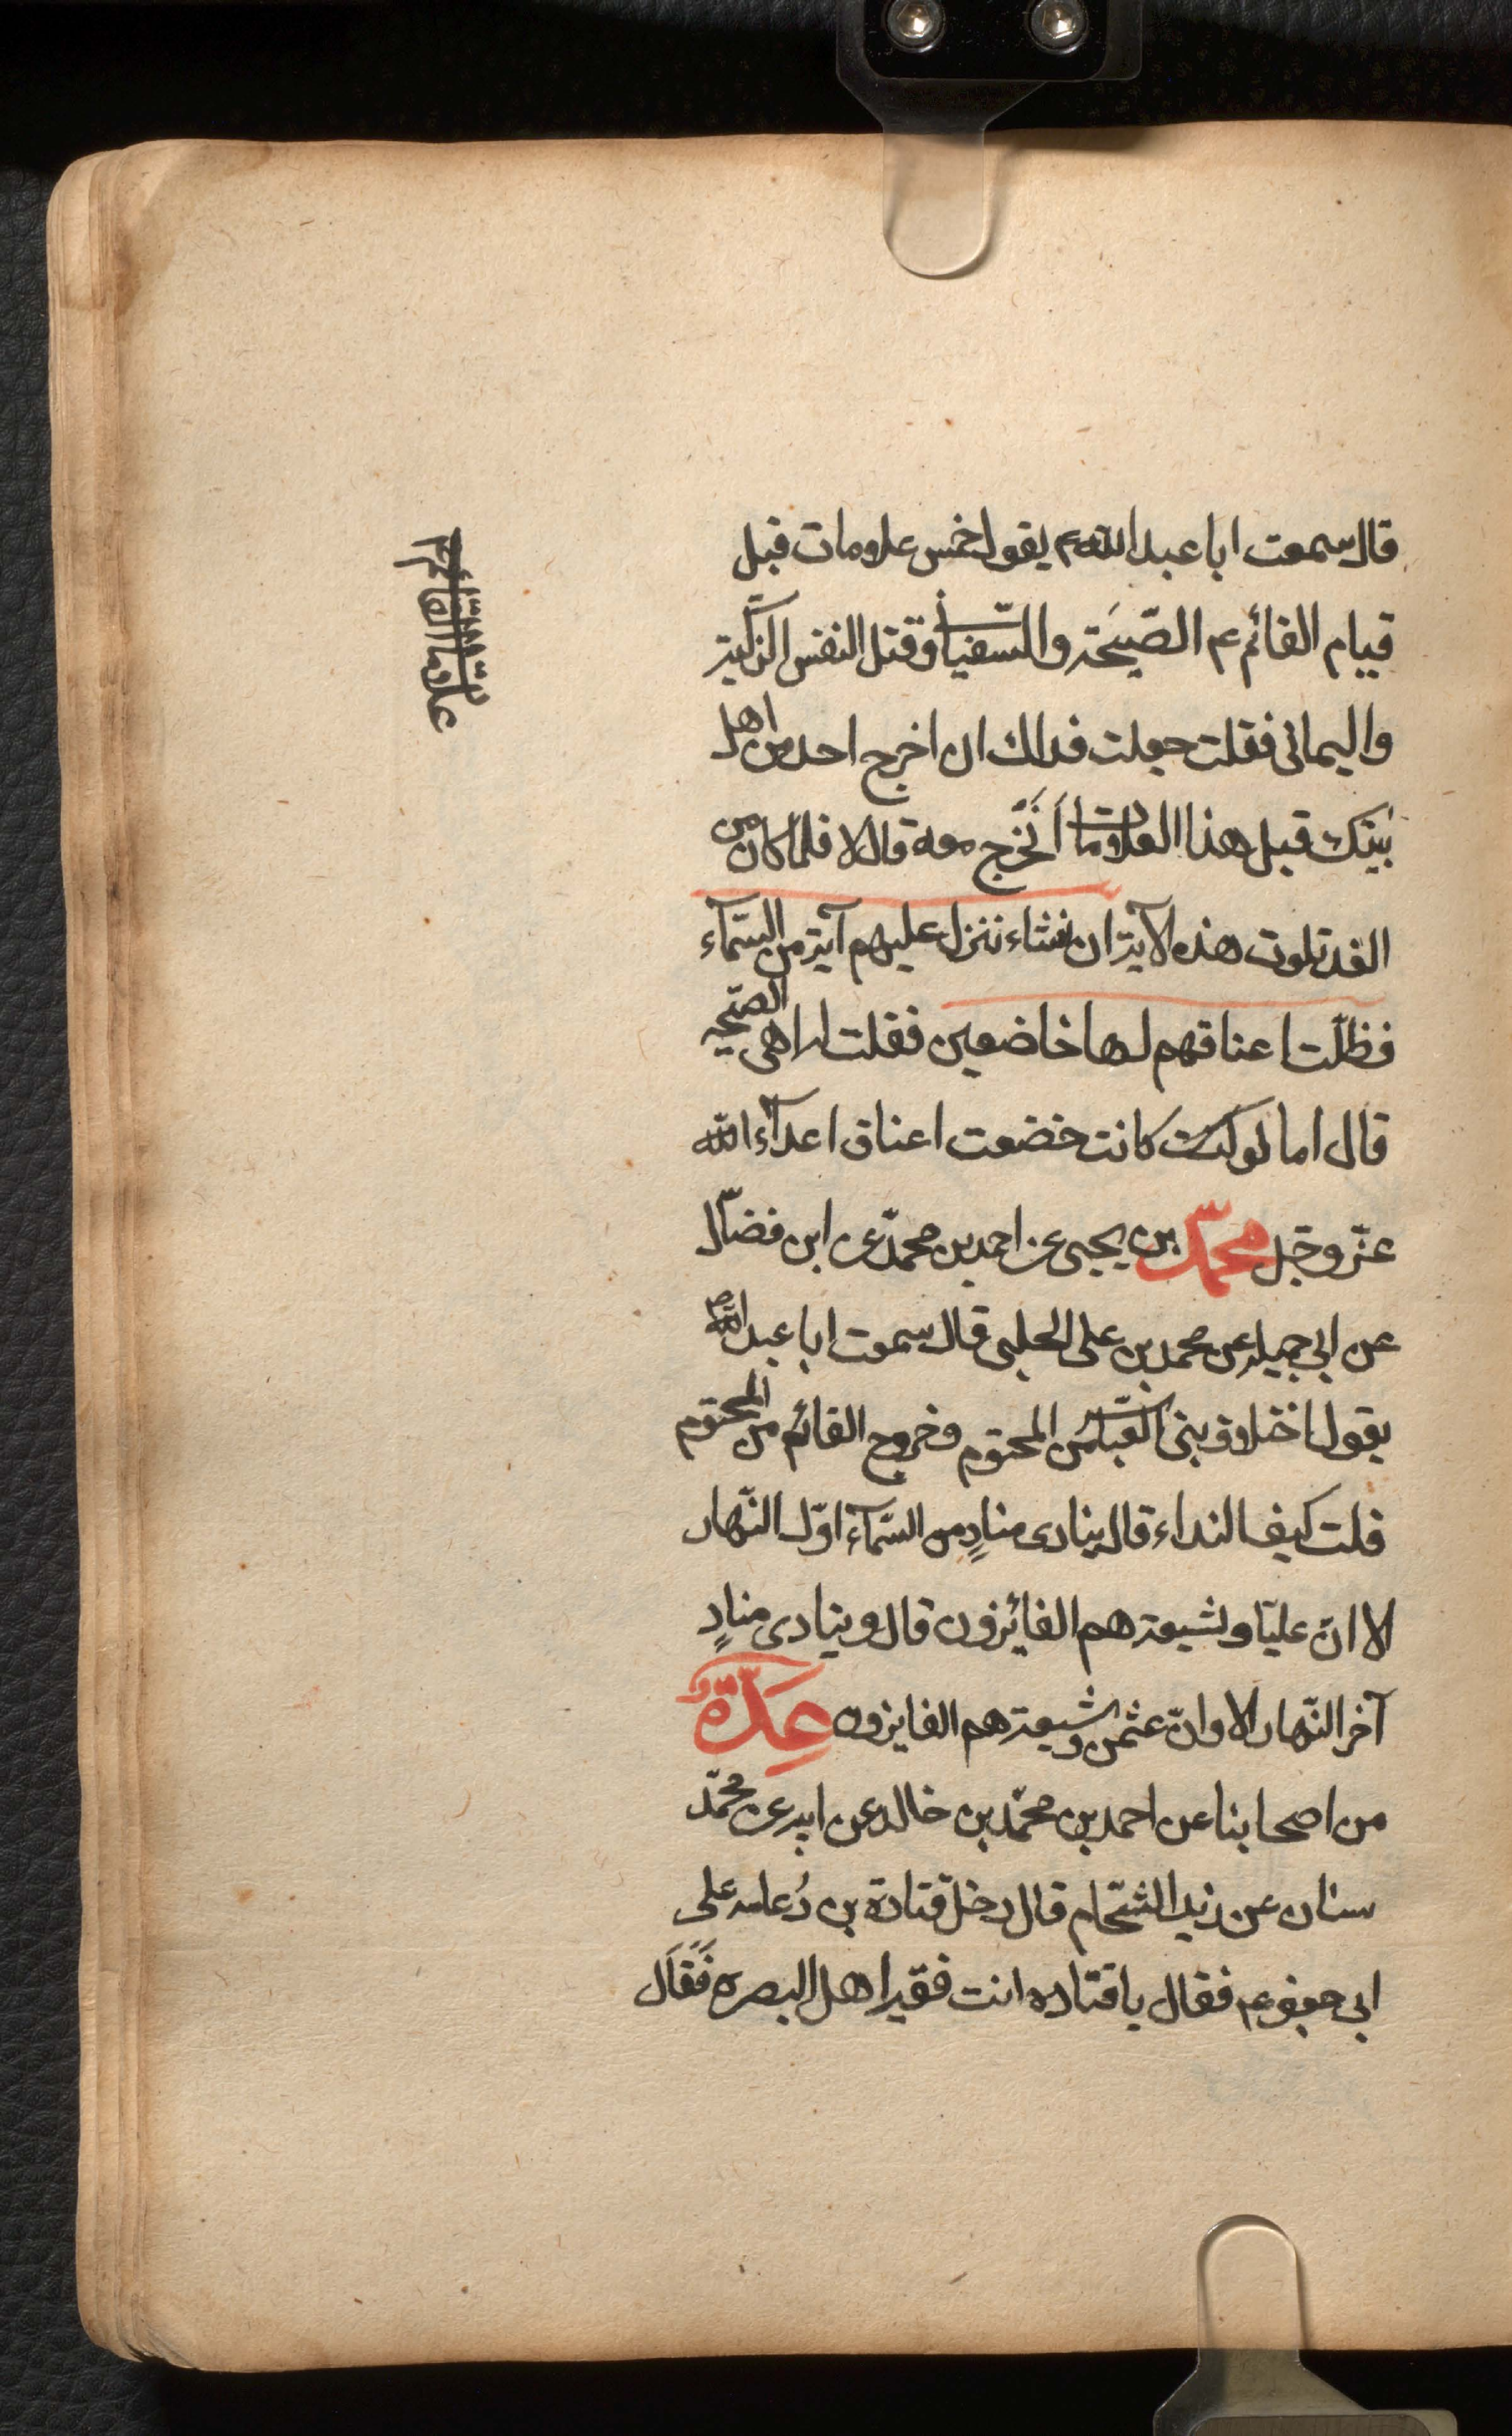 قال سمعت ابا عبد الله ع يقول خمس علامات قبل
قيام القائم عم الصّيحَة والسّفيانى وقتل النفس الزكيّة
واليمانى فقلت جعلت فداك ان اخرج احد من اهل
بَيتك قبل هذا العلامات أنَخْرج معه قال لا فلما كان من
الغد تلوت هذه الآية ان نشاء ننزل عليهم آية من السّمآء
فظلّت اعناقهم لها خاضعين فقلت له اهى الصّيحه
قال اما لو كانت كانت خضعت اعناق اعدآء الله
عزّ وجّل محمّد بن يحيى عن احمد بن محمّد عن ابن فضّال
عن ابى جميله عن محمد بن على الحلبى قال سمعت ابا عبد الله ع
يقول اختلاف بنى العبّاس من المحتوم وخروج القائم من المحتوم
قلت كيف النداء قال ينادى منادٍ من السّمآء اوّل النّهار
الا انّ عليّا وشيعته هم الفائيزون قال وينادى منادٍ
آخر النّهار الا وانّ عثمن وشيعته هم الفايزون عِدّةٌ
من اصحابنا عن احمد بن محمّد بن خالد عن ابيه عن محمّد
سنان عن زيد الشّحّام قال دخل قتادة بن دُعامه على
ابى جعفر عم فقال يا قتاده انت فقيه اهل البصره فَقَال
علامات القائم ع